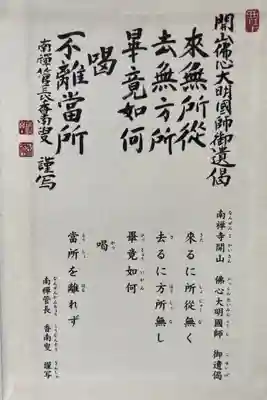 開山佛心大明國師御遺偈
來無所從
去無方所
畢竟如何
喝
不離當所
南禪管長香南叟 謹写
南禅寺開山 佛心大明國師 御遺偈
来るに所従無く
去るに方所無し
畢竟如何
喝
當所を離れず
南禅管長 香南叟 謹写